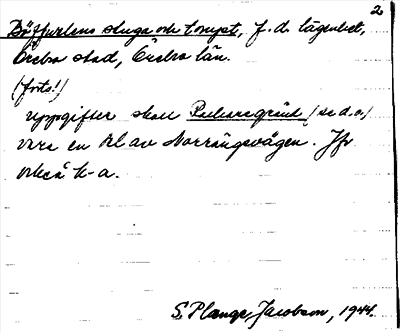 2
Böffurlens stuga och tompt, f.d. lägenhet,
Örebro stad, Örebro län.
(forts.)
uppgifter skall Packaregränd (se d.o.)
vara en del av Norrängsvägen. Jfr
också k-a.
S. Plange Jacobson, 1944.